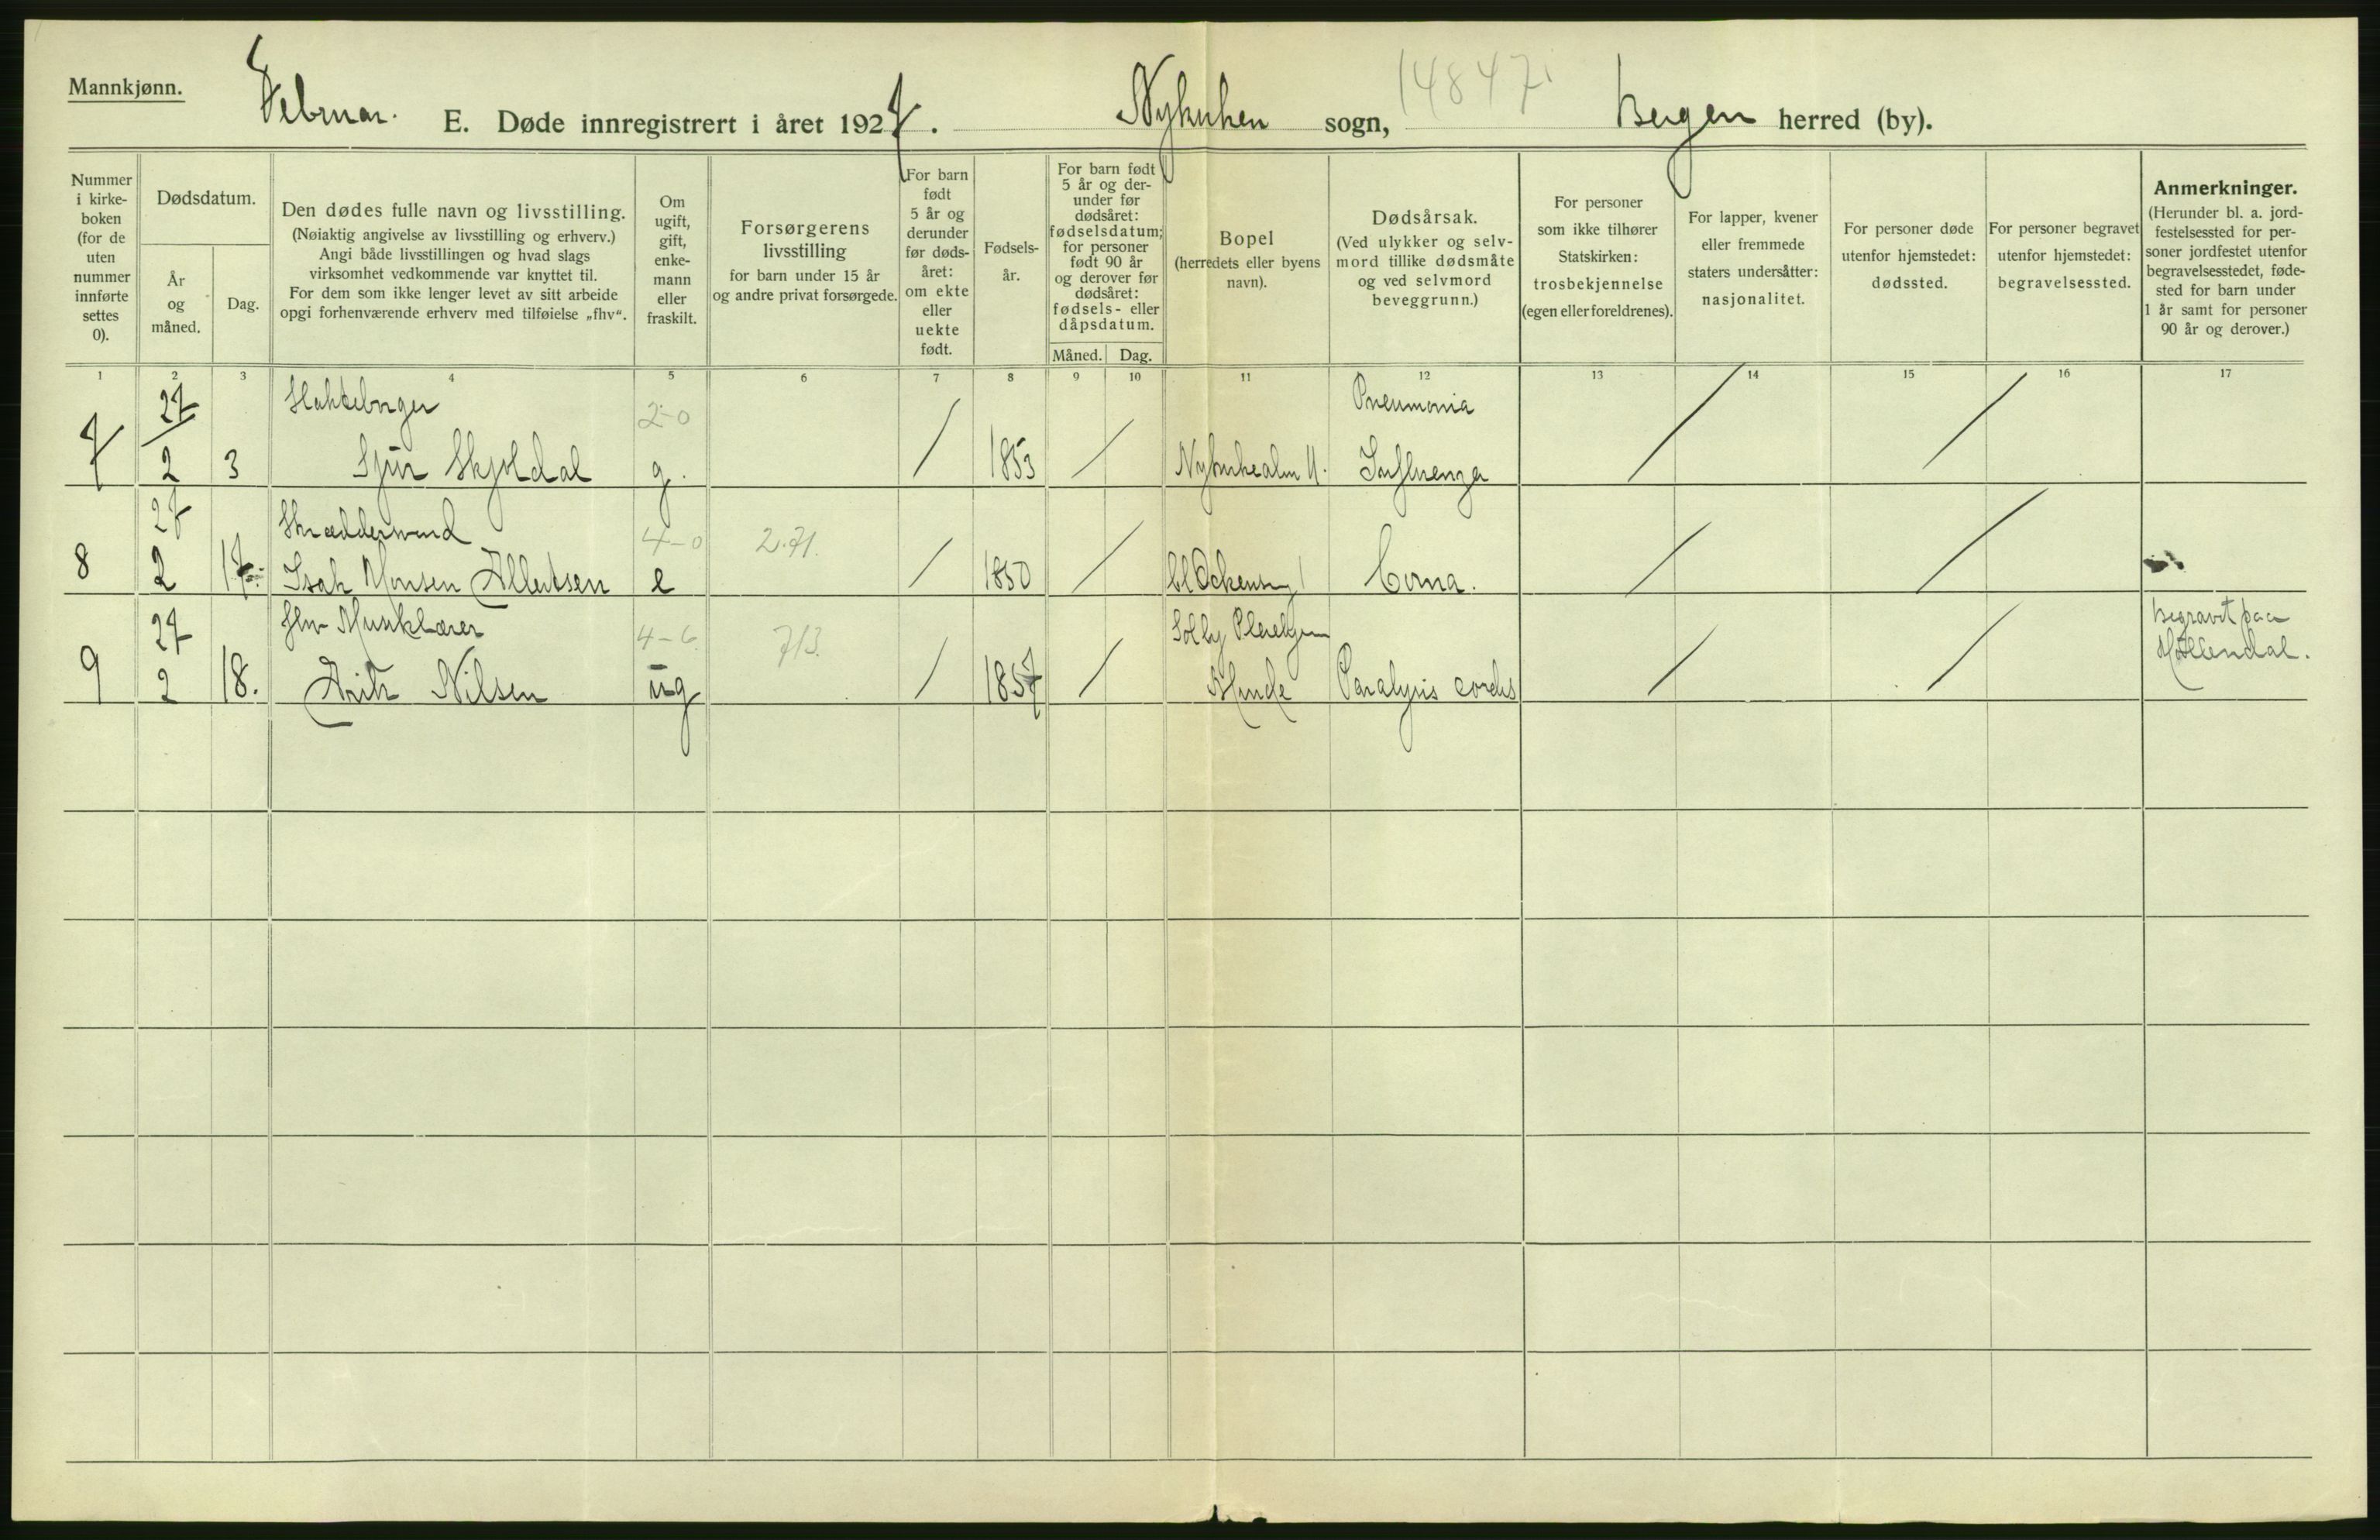 Mannkjønn.
Februar. E. Døde innregistrert i året 1927. Nykirken sogn, 14847 Bergen herred (by).
Nummer i kirke- boken (for de uten nummer innførte settes 0).
Dødsdatum.
År og måned.
Dag.
Den dødes fulle navn og livsstilling.
(Nøiaktig angivelse av livsstilling og erhverv.)
Angi både livsstillingen og hvad slags
virksomhet vedkommende var knyttet til.
For dem som ikke lenger levet av sitt arbeide
opgi forhenværende erhverv med tilføielse „fhv“.
Om ugift, gift, enke- mann eller fraskilt.
Forsørgerens
livsstilling
for barn under 15 år
og andre privat forsørgede.
For barn født 5 år og derunder før døds- året: om ekte eller uekte født.
Fødsels- år.
For barn født 5 år og der- under før dødsåret: fødselsdatum; for personer født 90 år og derover før dødsåret: fødsels- eller dåpsdatum.
Måned. Dag.
Bopel
(herredets eller byens
navn).
Dødsårsak.
(Ved ulykker og selv-
mord tillike dødsmåte
og ved selvmord
beveggrunn.)
For personer
som ikke tilhører
Statskirken:
trosbekjennelse
(egen eller foreldrenes).
For lapper, kvener
eller fremmede
staters undersåtter:
nasjonalitet.
For personer døde
utenfor hjemstedet:
dødssted.
For personer begravet
utenfor hjemstedet:
begravelsessted.
Anmerkninger.
(Herunder bl. a. jord-
festelsessted for per-
soner jordfestet utenfor
begravelsesstedet, føde-
sted for barn under
1 år samt for personer
90 år og derover.)
1 2 3 4 5 6 7 8 9 10 11 12 13 14 15 16 17
27 2-0 Pneumonia
7 2 3 Sjur Skjoldal g. / 1853 / 11. Influenza / /
27 4-0 2.71.
8 2 17. Isak Monsen Albertsen e / 1850 / 1 Coma. / /
27 fhv Musiklærer 4-6 713. Solby Pleiehjem Begravt paa
9 2 18. Nilsen ug / 1857 / Minde Paralysis cordis / / Møllendal.